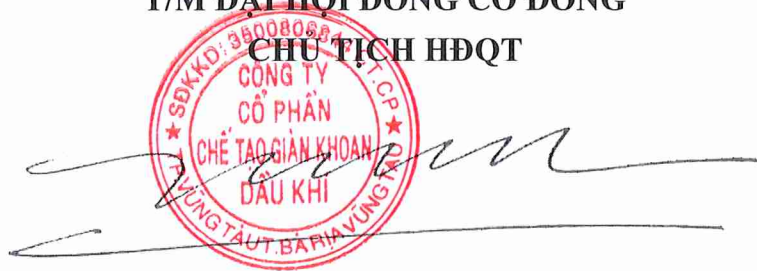 T/M ĐẠI HỘI ĐỒNG CỔ ĐÔNG
CHỦ TỊCH HĐQT
SĐKKD: 3500806844 - C.T.CP
CÔNG TY
CỔ PHẦN
CHẾ TẠO GIÀN KHOAN
DẦU KHÍ
TP.VŨNG TÀU T.BÀ RỊA VŨNG TÀU